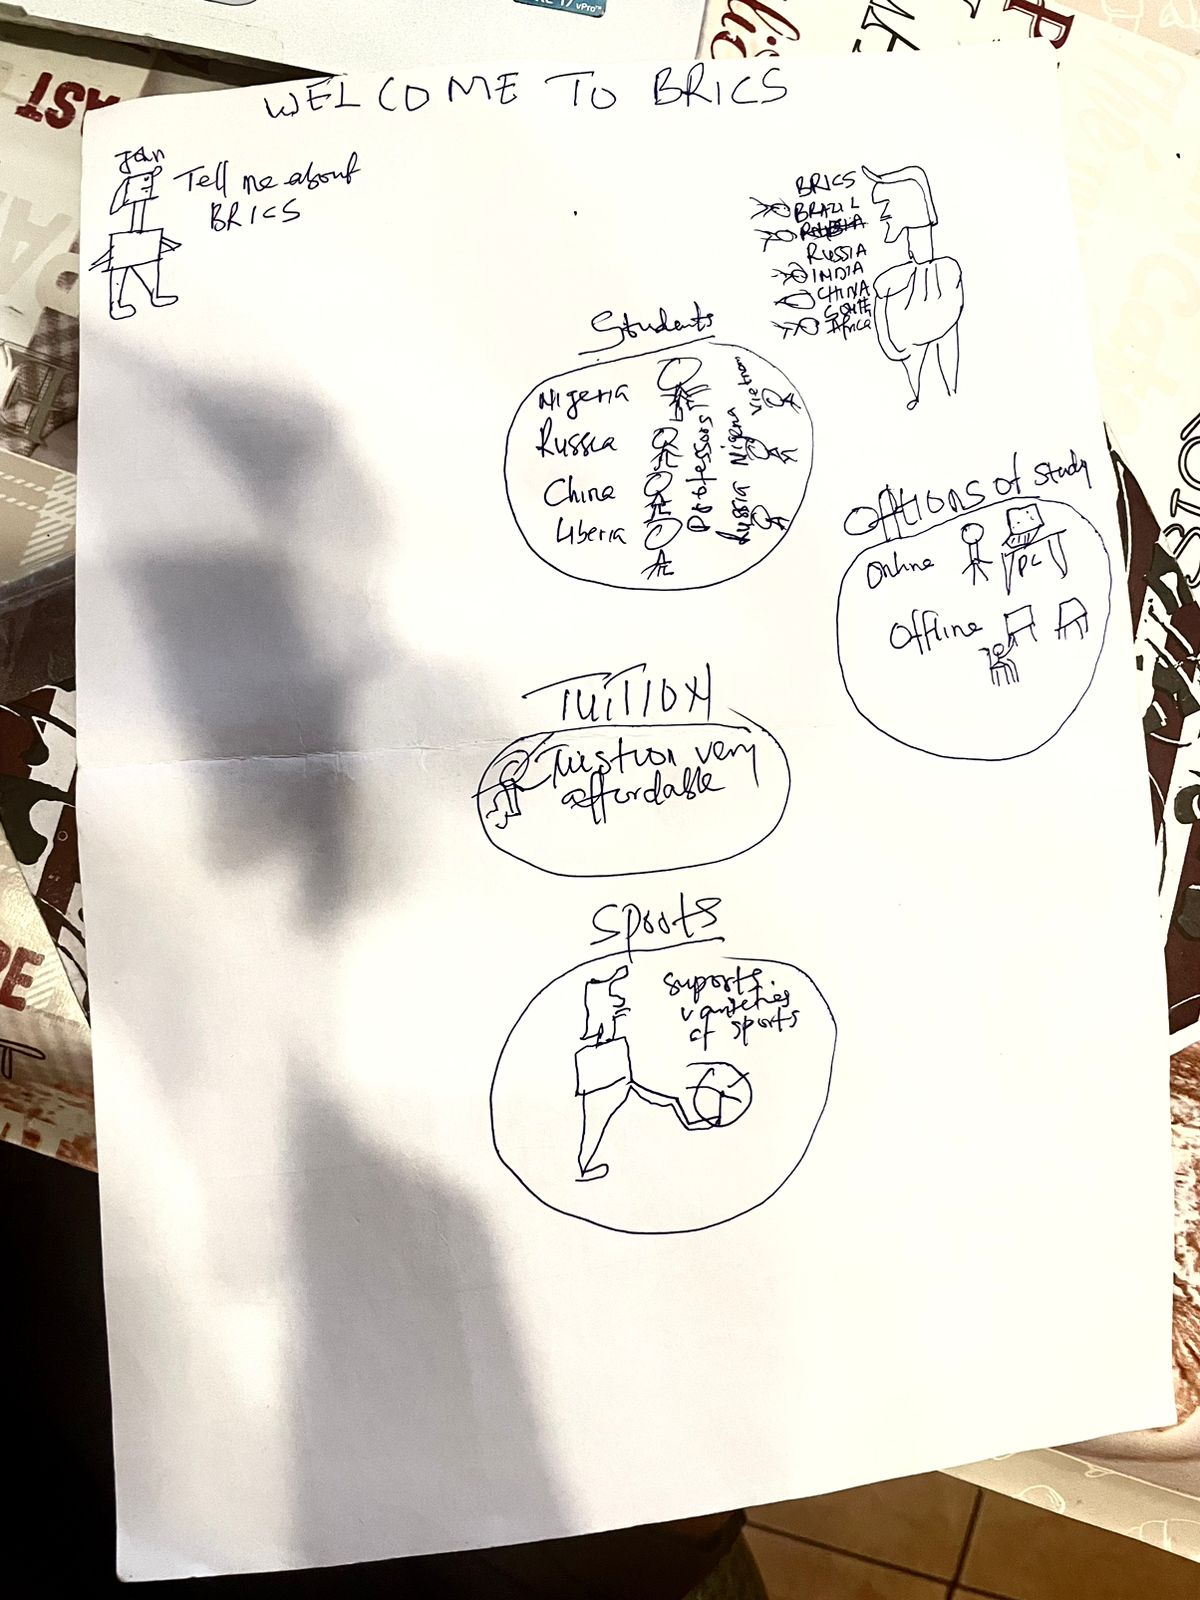 WELCOME TO BRICS
Jan
Tell me about
BRICS
BRICS
BRAZIL
RUSSIA
INDIA
CHINA
South
Africa
Students
Nigeria
Russia
China
Liberia
Professors
Vietnam
Nigeria
Russia
Offtions of study
Online
PC
Offline
TUITION
Tuistion very
affordable
Sports
suports
varieties
of sports
vPro